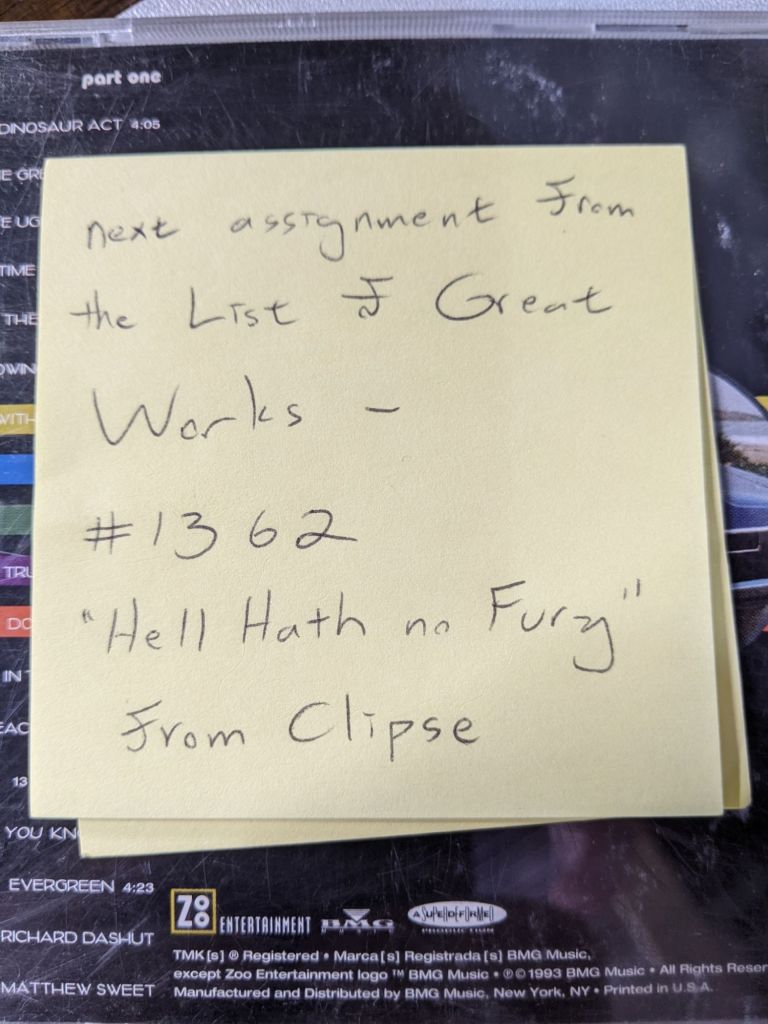 part one
DINOSAUR ACT 4:05
next assignment from
the List of Great
Works -
#1362
"Hell Hath no Fury"
from Clipse
TIME
THE
WITH
IN
13
EVERGREEN 4:23
RICHARD DASHUT
MATTHEW SWEET
YOU
ZOO ENTERTAINMENT BMG
PRODUCTION
TMK[s] ® Registered • Marca[s] Registrada[s] BMG Music,
except Zoo Entertainment logo ™ BMG Music • ℗©1993 BMG Music • All Rights
Manufactured and Distributed by BMG Music, New York, NY • Printed in U.S.A.